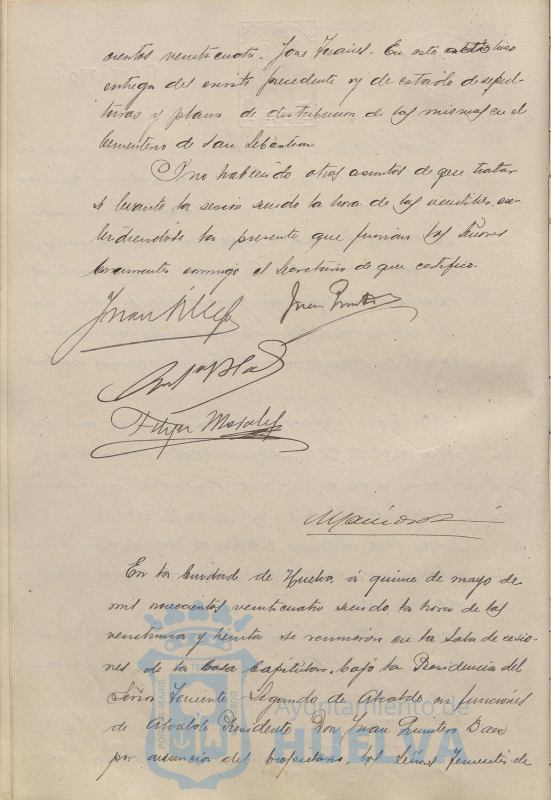 cientos veinticuatro. José Juanes. En este acto hizo
entrega del escrito precedente y de estado de sepul-
turas y plano de distribucion de las mismas en el
Cementerio de San Sebastian
Y no habiendo otros asuntos de que tratar
se levanto la sesion siendo la hora de las veintitres ex-
tendiendose la presente que firman los Señores
concurrentes conmigo el Secretario de que certifico.
Juan
Juan Quintero
Felipe Morales
En la Ciudad de Huelva á quince de mayo de
mil novecientos veinticuatro siendo la hora de las
veintiuna y treinta se reunieron en la Sala de sesio-
nes de la Casa Capitular, bajo la Presidencia del
Señor Teniente Segundo de Alcalde en funciones
de Alcalde Presidente Don Juan Quintero Baez
por ausencia del propietario, los Señores Tenientes de
Ayuntamiento de
HUELVA